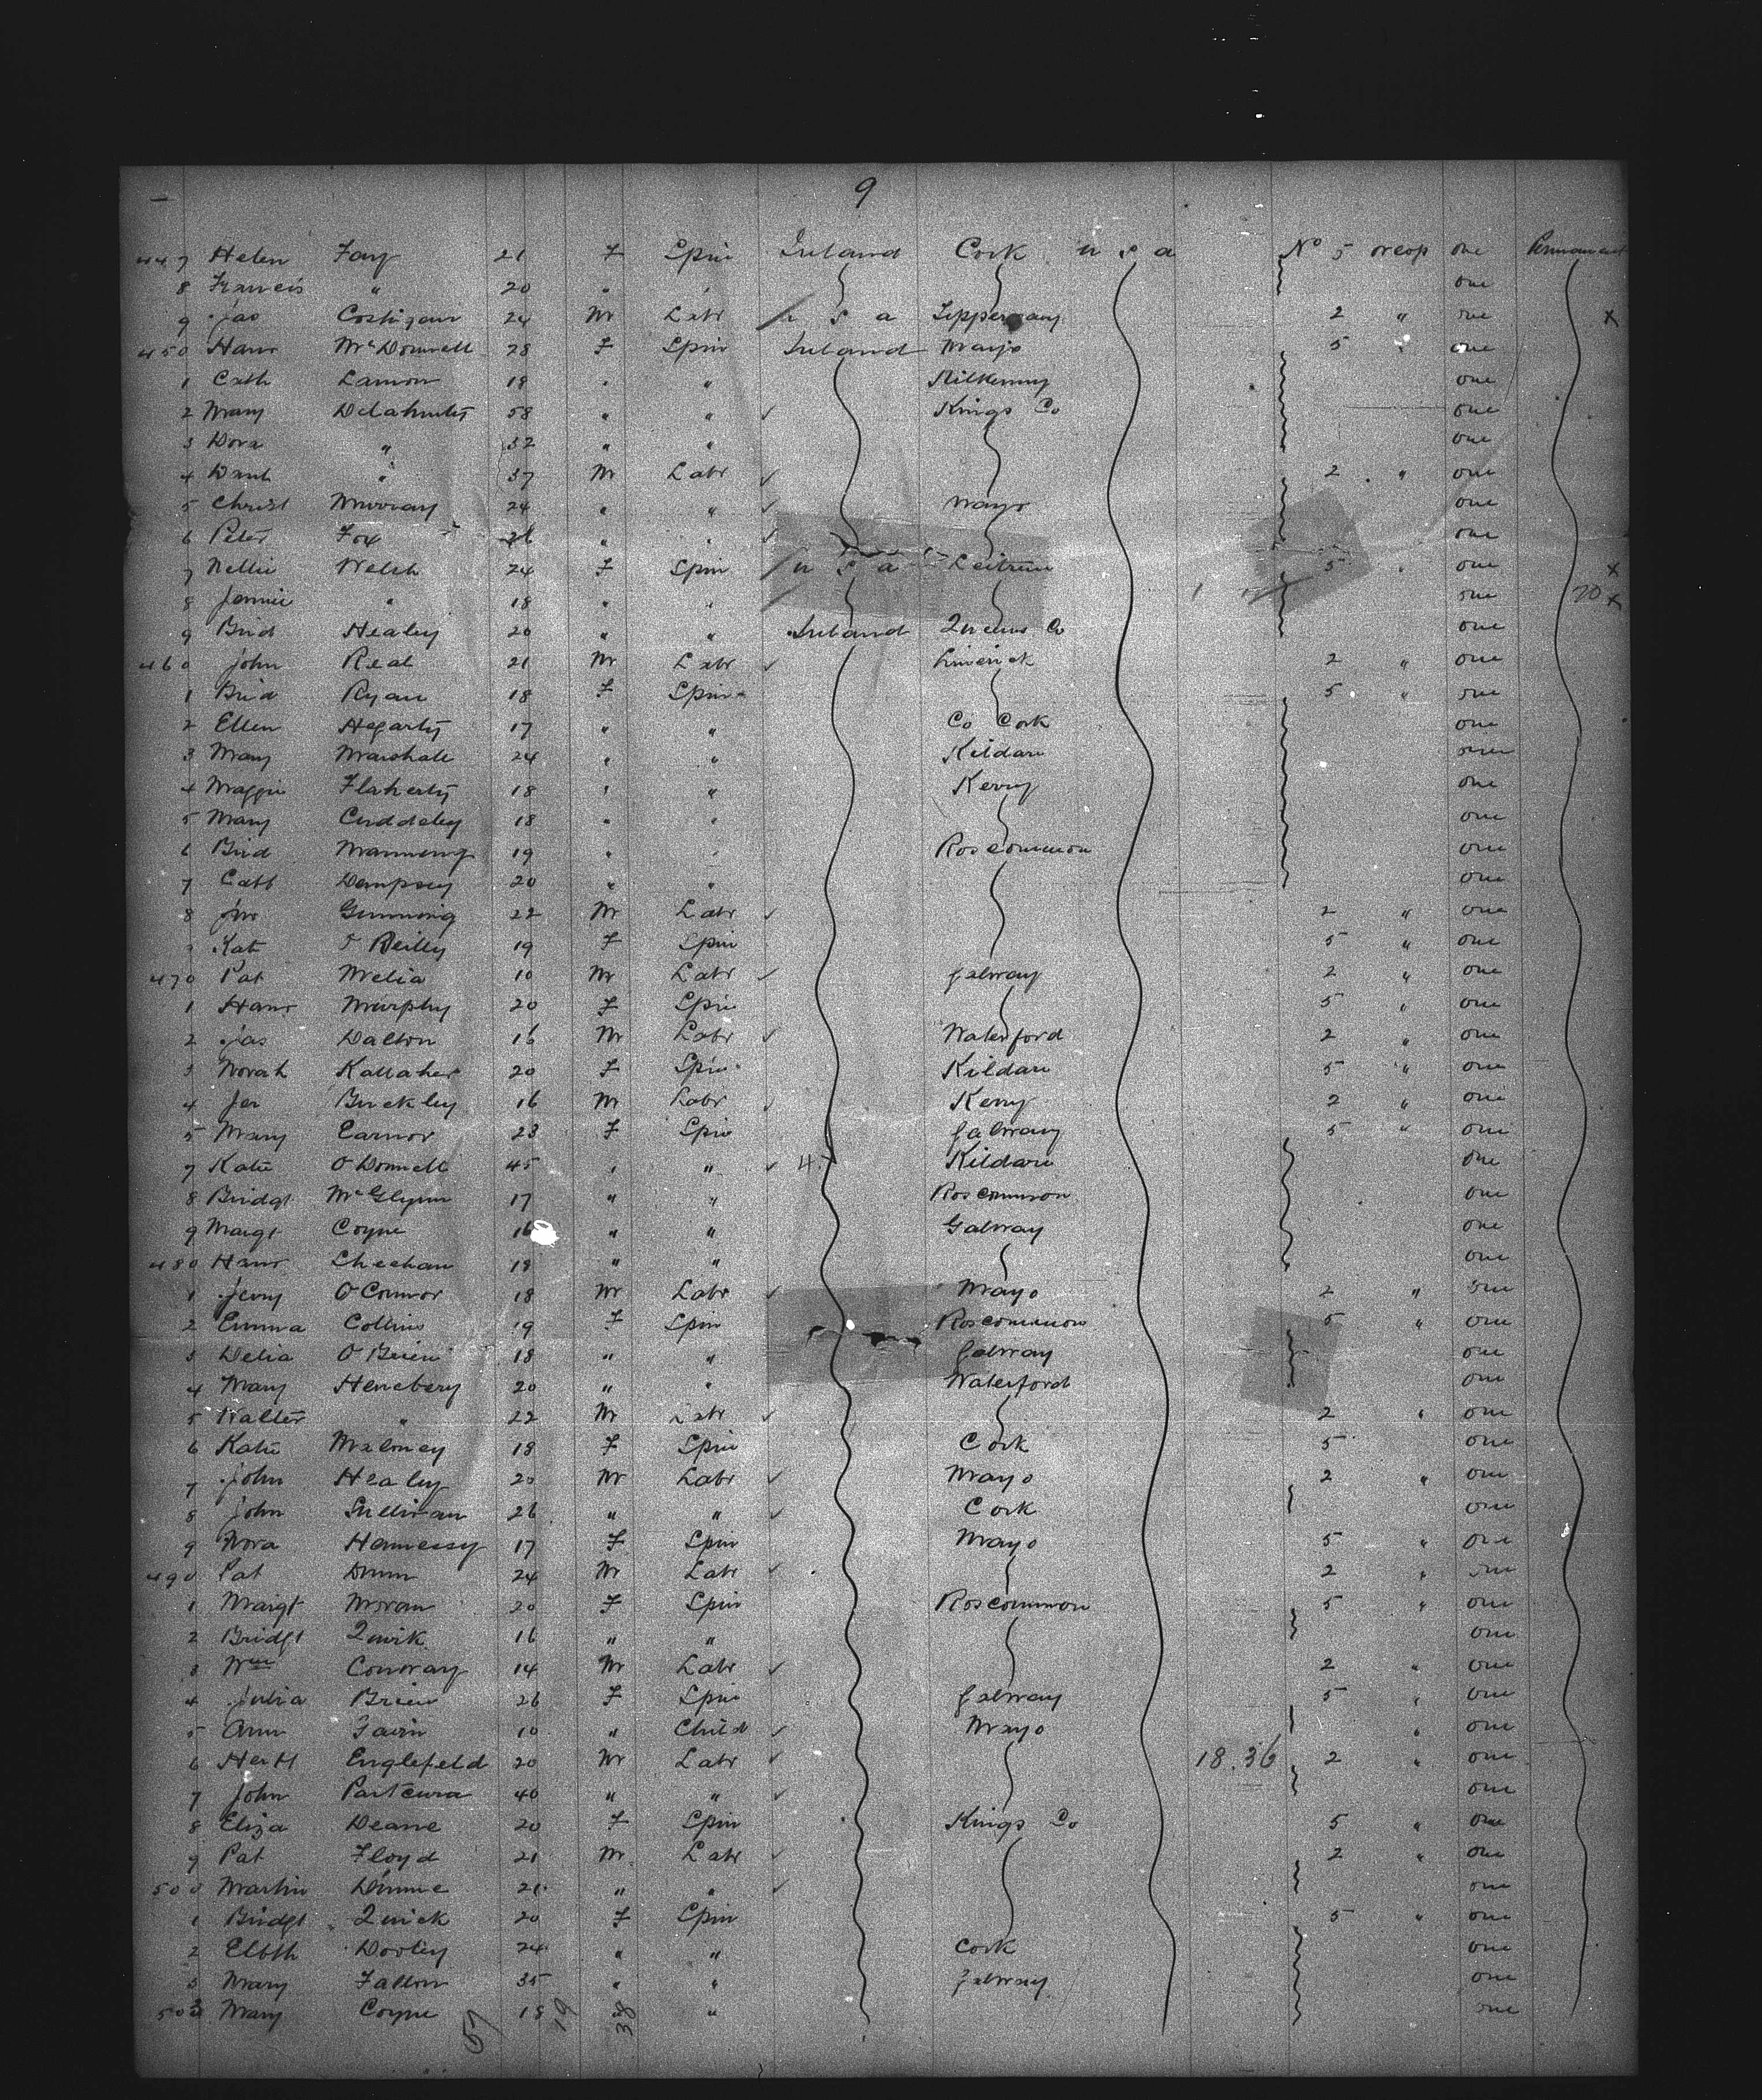 9
447 Helen Fay 21 F Spin Ireland Cork U S A No 5 Steerage one Permanent
8 Francis " 20 " " one
9 Jas Costigan 24 M Labr U S A Tipperary 2 " one X
450 Hanr McDonnell 28 F Spin Ireland Mayo 5 " one
1 Cath Lamon 19 " " Kilkenny one
2 Mary Delahunty 58 " " ✓ Kings Co one
3 Dora " 32 " " one
4 Danl " 37 M Labr ✓ 2 " one
5 Christ Murray 24 " " ✓ Mayo one
6 Peter Fox 26 " " ✓ one
7 Nellie Welsh 24 F Spin U S A Leitrim 5 " one X
8 Jennie " 18 " " one 20 X
9 Brid Healey 20 " " Ireland Queens Co one
460 John Real 21 M Labr ✓ Limerick 2 " one
1 Brid Ryan 18 F Spin 5 " one
2 Ellen Hegarty 17 " " Co Cork one
3 Mary Marshall 24 " " Kildare one
4 Maggie Flaherty 18 " " Kerry one
5 Mary Cuddehy 18 " " one
6 Brid Manning 19 " " Roscommon one
7 Cath Dempsey 20 " " one
8 Jno Gunning 22 M Labr ✓ 2 " one
9 Kat O Reilly 19 F Spin 5 " one
470 Pat Melia 10 M Labr ✓ Galway 2 " one
1 Hanr Murphy 20 F Spin 5 " one
2 Jas Dalton 16 M Labr ✓ Waterford 2 " one
3 Norah Kallaher 20 F Spin Kildare 5 " one
4 Jer Buckley 16 M Labr ✓ Kerry 2 " one
5 Mary Earnor 23 F Spin Galway 5 " one
7 Katie O Donnell 45 " " ✓ Kildare one
8 Bridgt McGlynn 17 " " Roscommon one
9 Margt Coyne 16 " " Galway one
480 Hanr Sheehan 18 " " one
1 Jerry O Connor 18 M Labr ✓ Mayo 2 " one
2 Emma Collins 19 F Spin Roscommon 5 " one
3 Delia O Brien 18 " " Galway one
4 Mary Henebery 20 " " Waterford one
5 Walter " 22 M Labr ✓ 2 " one
6 Katie Maloney 18 F Spin Cork 5 one
7 John Healey 20 M Labr ✓ Mayo 2 " one
8 John Sullivan 26 " " ✓ Cork one
9 Nora Hennessy 17 F Spin Mayo 5 " one
490 Pat Dunn 24 M Labr ✓ 2 " one
1 Margt Moran 20 F Spin Roscommon 5 " one
2 Bridgt Quirk 16 " " one
3 Wm Conway 14 M Labr ✓ 2 " one
4 Julia Brien 26 F Spin Galway 5 " one
5 Ann Gavin 10 " Child ✓ Mayo " one
6 Englefeld 20 M Labr ✓ 18.36 2 " one
7 John 40 " " ✓ one
8 Eliza Deane 20 F Spin Kings Co 5 " one
9 Pat Floyd 21 M Labr ✓ 2 " one
500 Martin Dunne 21 " " ✓ one
1 Bridgt Quick 20 F Spin 5 " one
2 Elbth Dooley 24 " " Cork one
3 Mary Fallon 35 " " Galway one
503 Mary Coyne 18 " " one
57 19 38